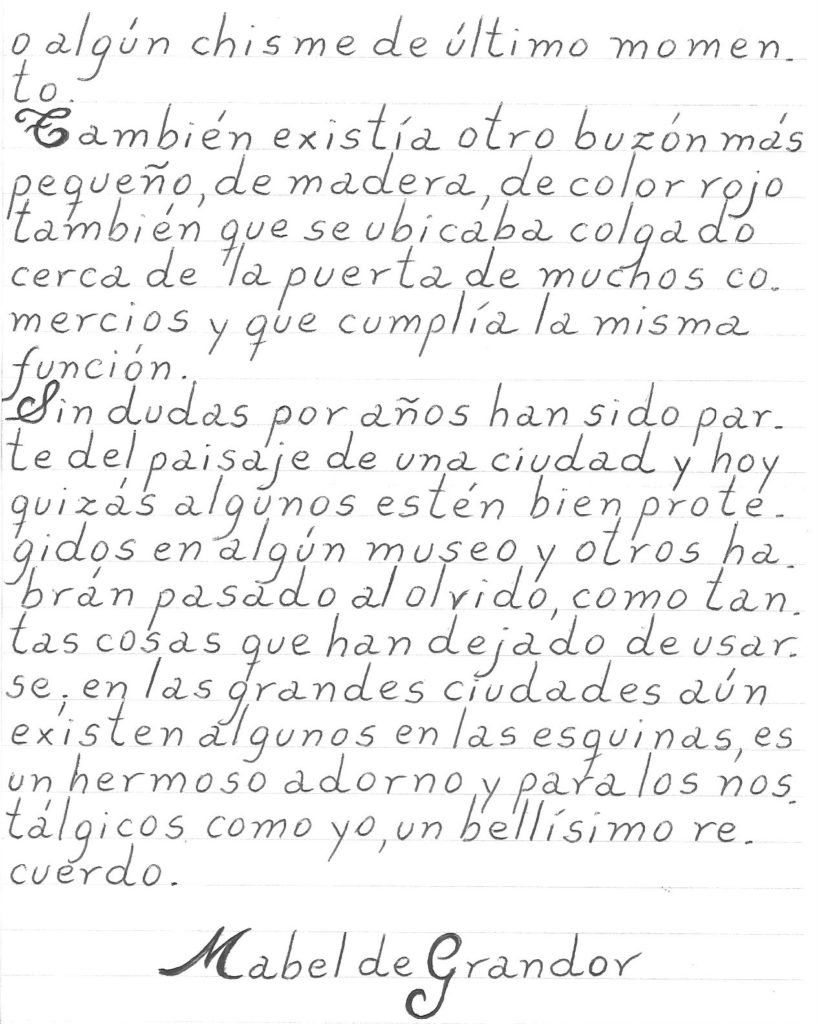 o algún chisme de último momen-
to.
También existía otro buzón más
pequeño, de madera, de color rojo
también que se ubicaba colgado
cerca de la puerta de muchos co-
mercios y que cumplía la misma
función.
Sin dudas por años han sido par-
te del paisaje de una ciudad y hoy
quizás algunos estén bien prote-
gidos en algún museo y otros ha-
brán pasado al olvido, como tan-
tas cosas que han dejado de usar-
se; en las grandes ciudades aún
existen algunos en las esquinas, es
un hermoso adorno y para los nos-
tálgicos como yo, un bellísimo re-
cuerdo.
Mabel de Grandor